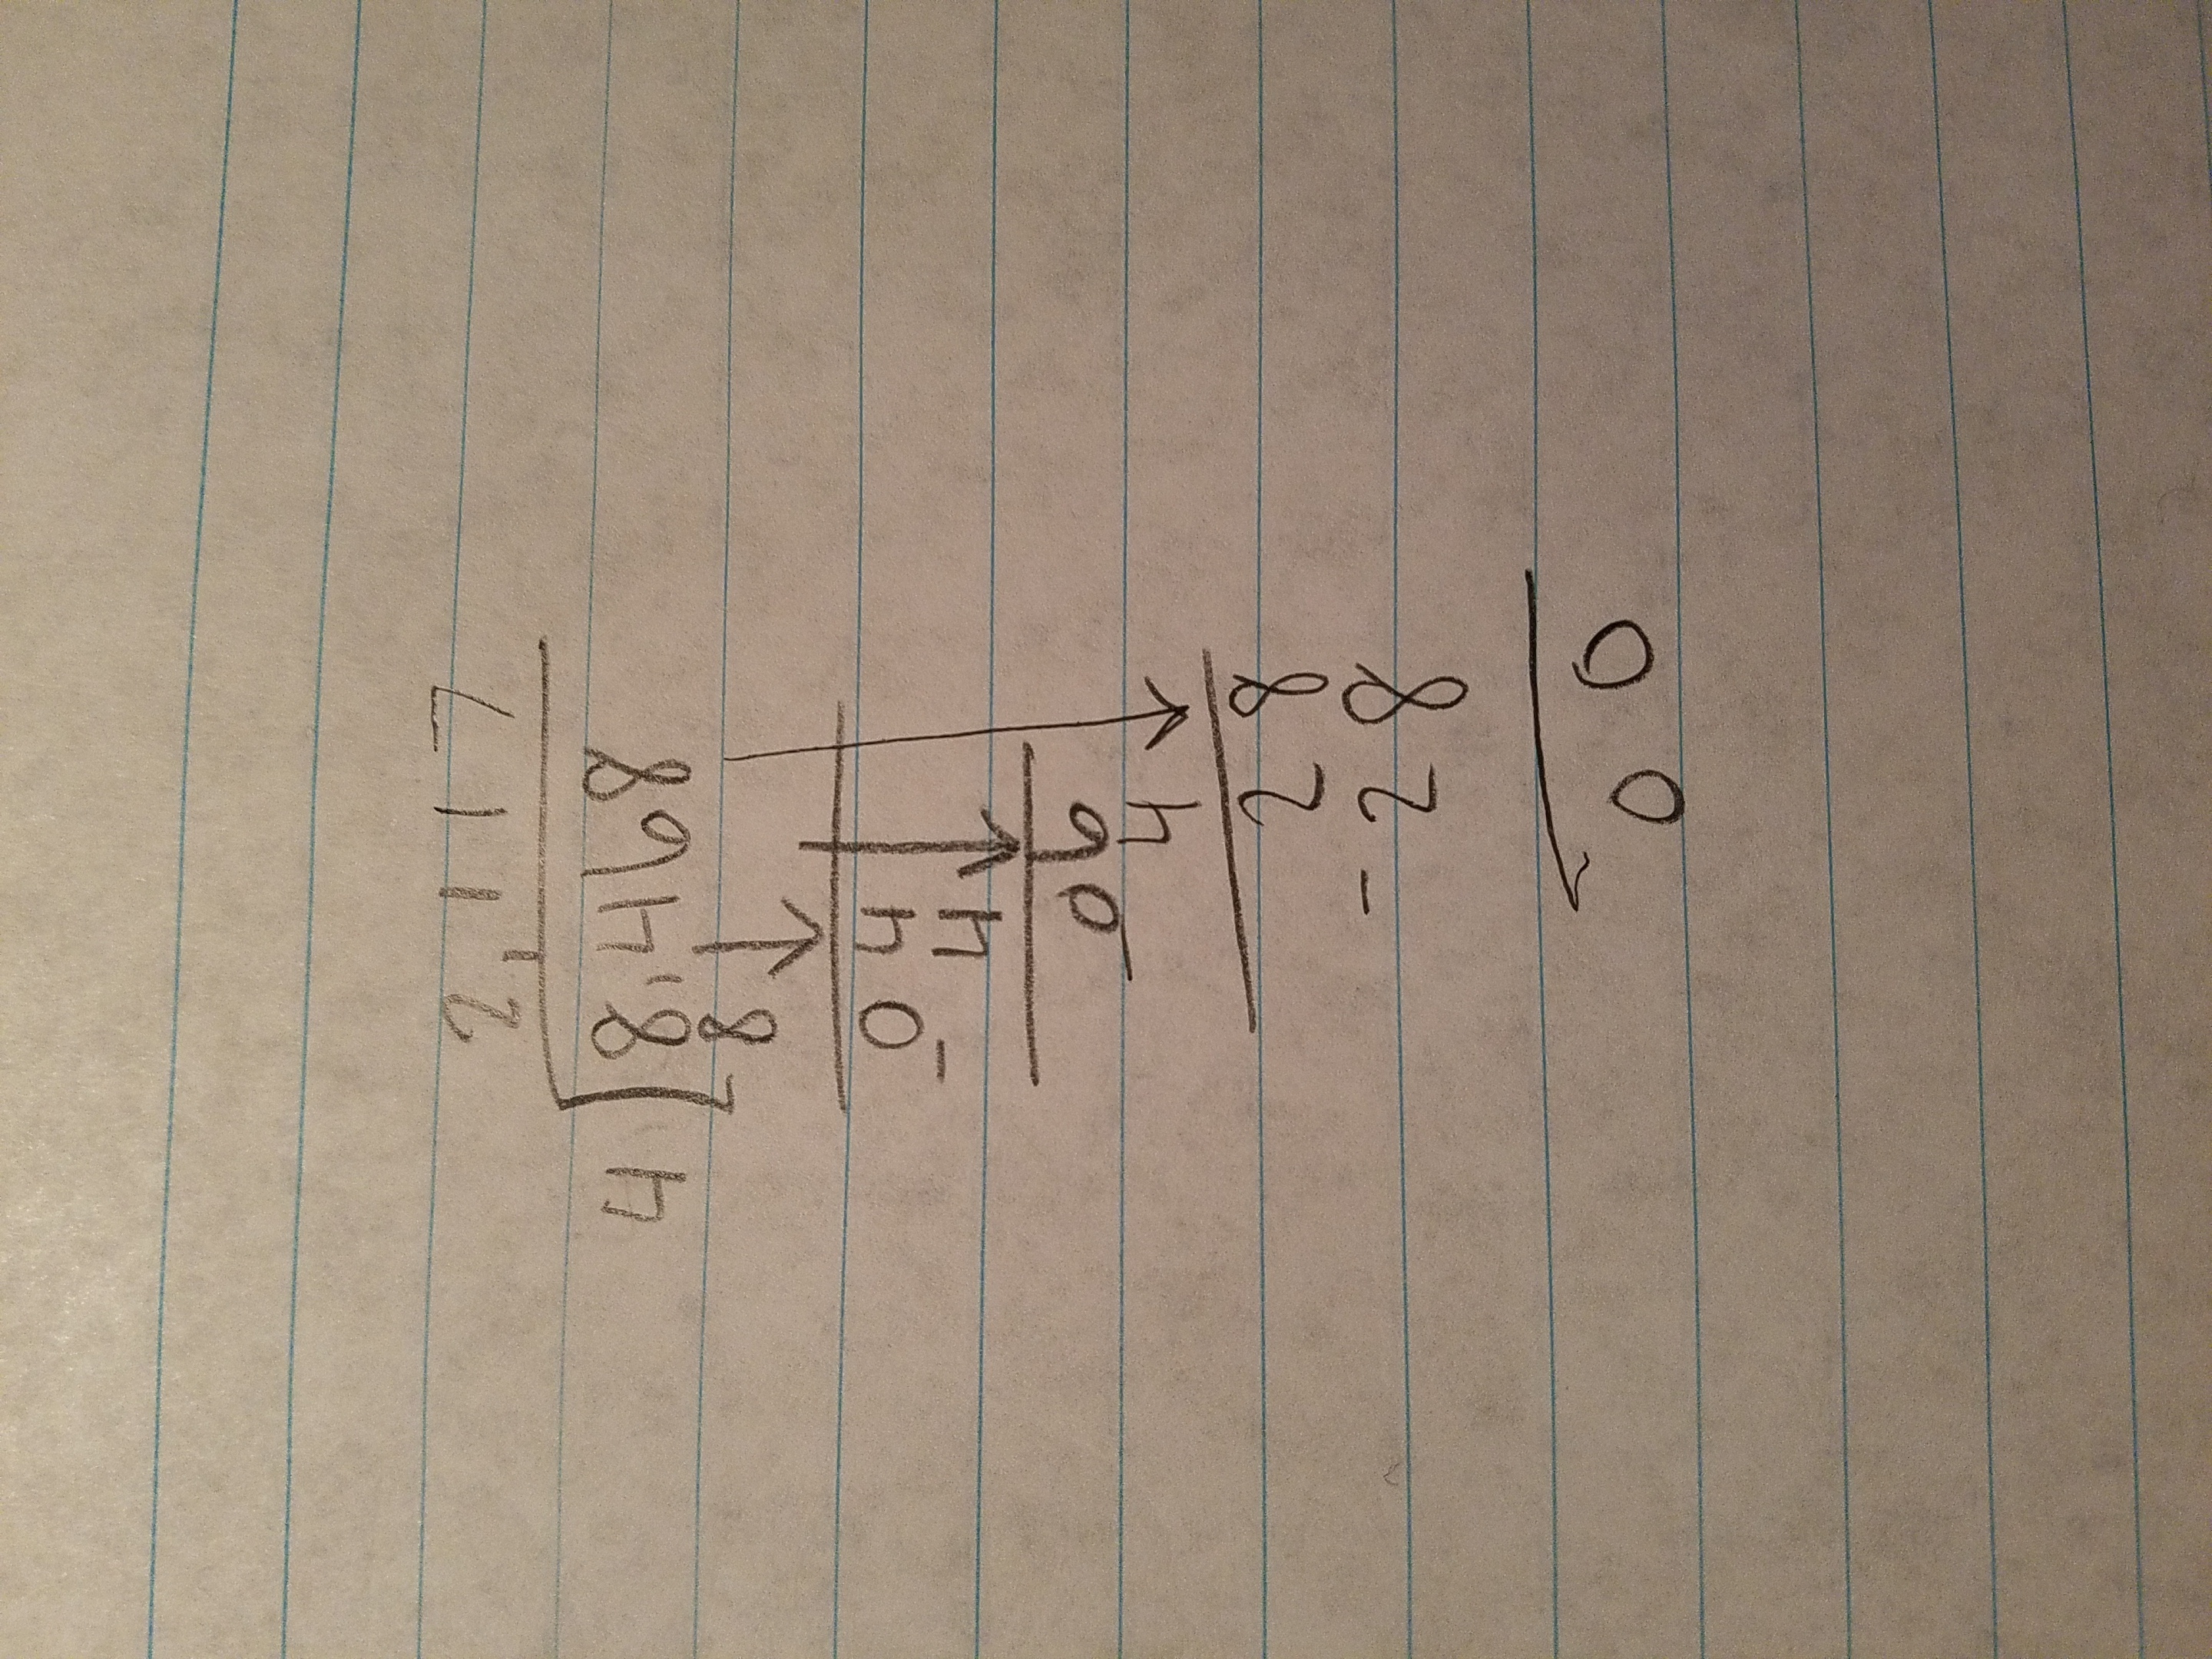 2,117
4 8,468
8
04
- 4
06
- 4
28
- 28
00